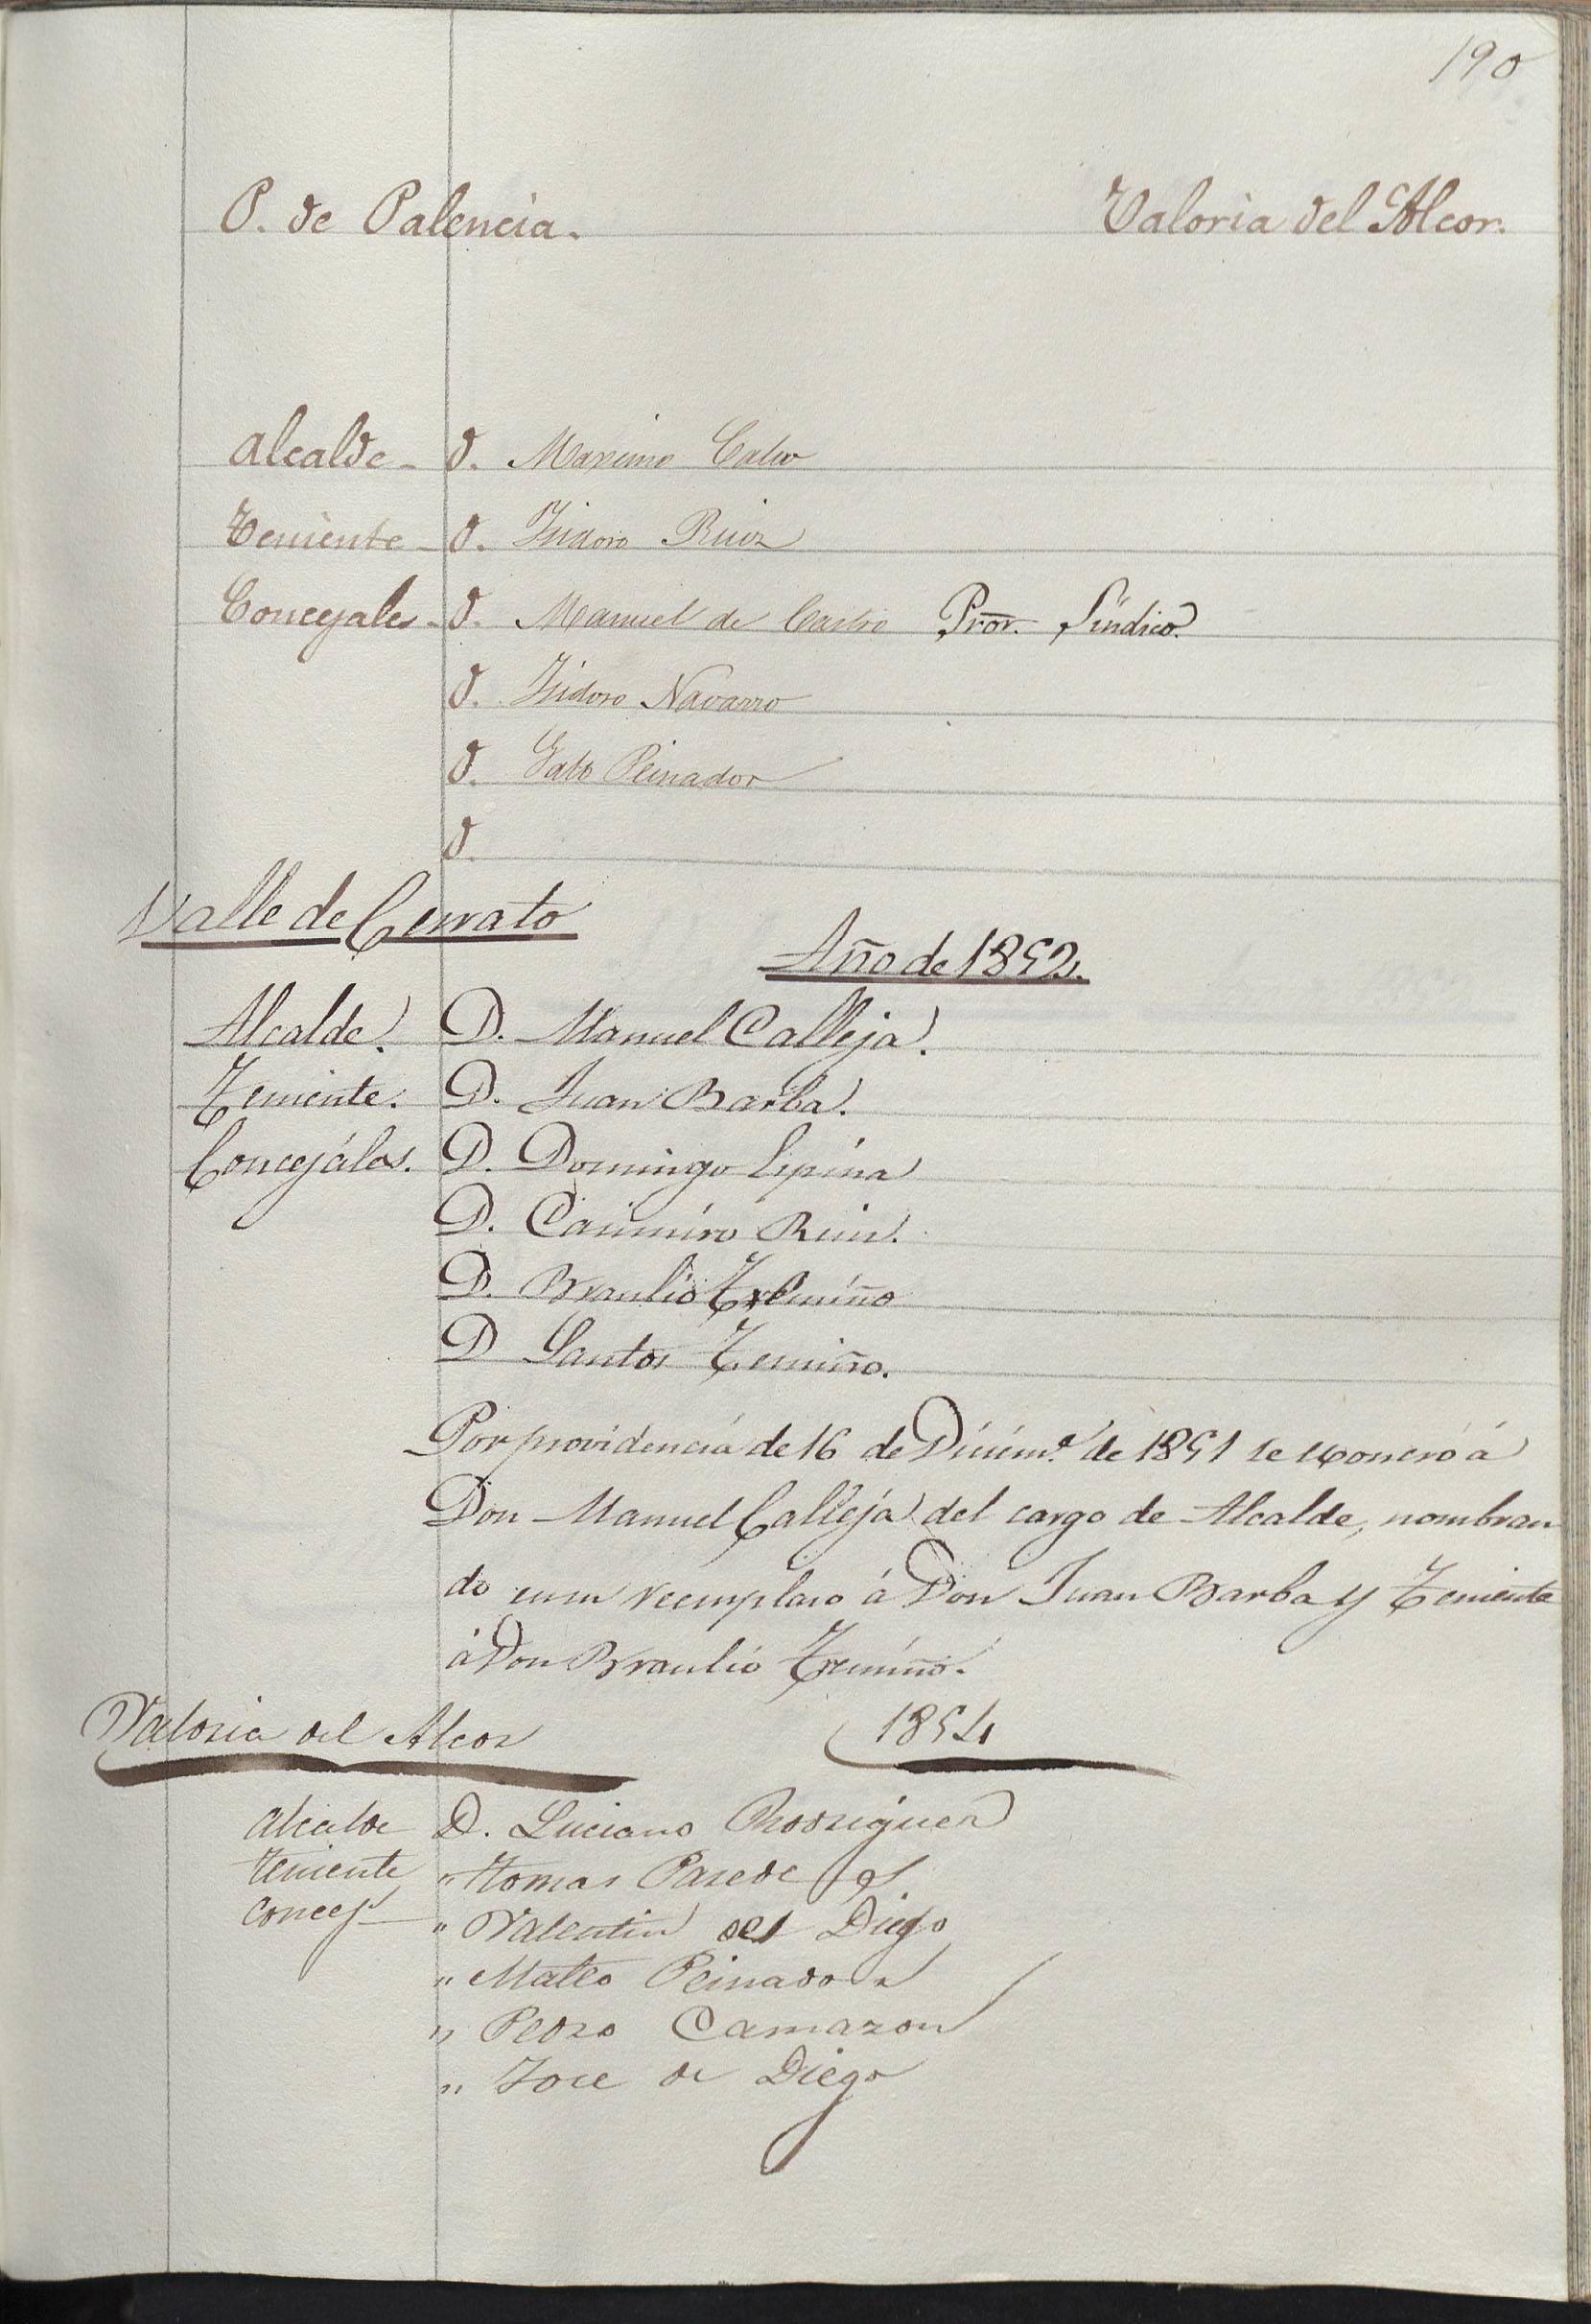 190
P. de Palencia. Valoria del Alcor.
Alcalde - D. Maximo Calvo
Teniente - D. Isidoro Ruiz
Concejales - D. Manuel de Castro Pror. Síndico.
D. Isidoro Navarro
D. Peinador
D.
Valle de Cerrato
Año de 1852.
Alcalde. D. Manuel Calleja.
Teniente. D. Juan Barba.
Concejáles. D. Domingo Espina
D. Casimiro Ruiz.
D. Braulio Tremiño
D Santos Temiño.
Por providencia de 16 de Diciem.e de 1851 se exoneró á
Don Manuel Calleja del cargo de Alcalde, nombran
do en su reemplazo á Don Juan Barba y Teniente
á Don Braulio Tremiño.
Valoria del Alcor 1854
Alcalde D. Luciano Rodriguez
teniente " Tomas Paredes
concejs " Valentin de Diego
" Mateo Peinador
" Pedro Camazon
" Jose de Diego